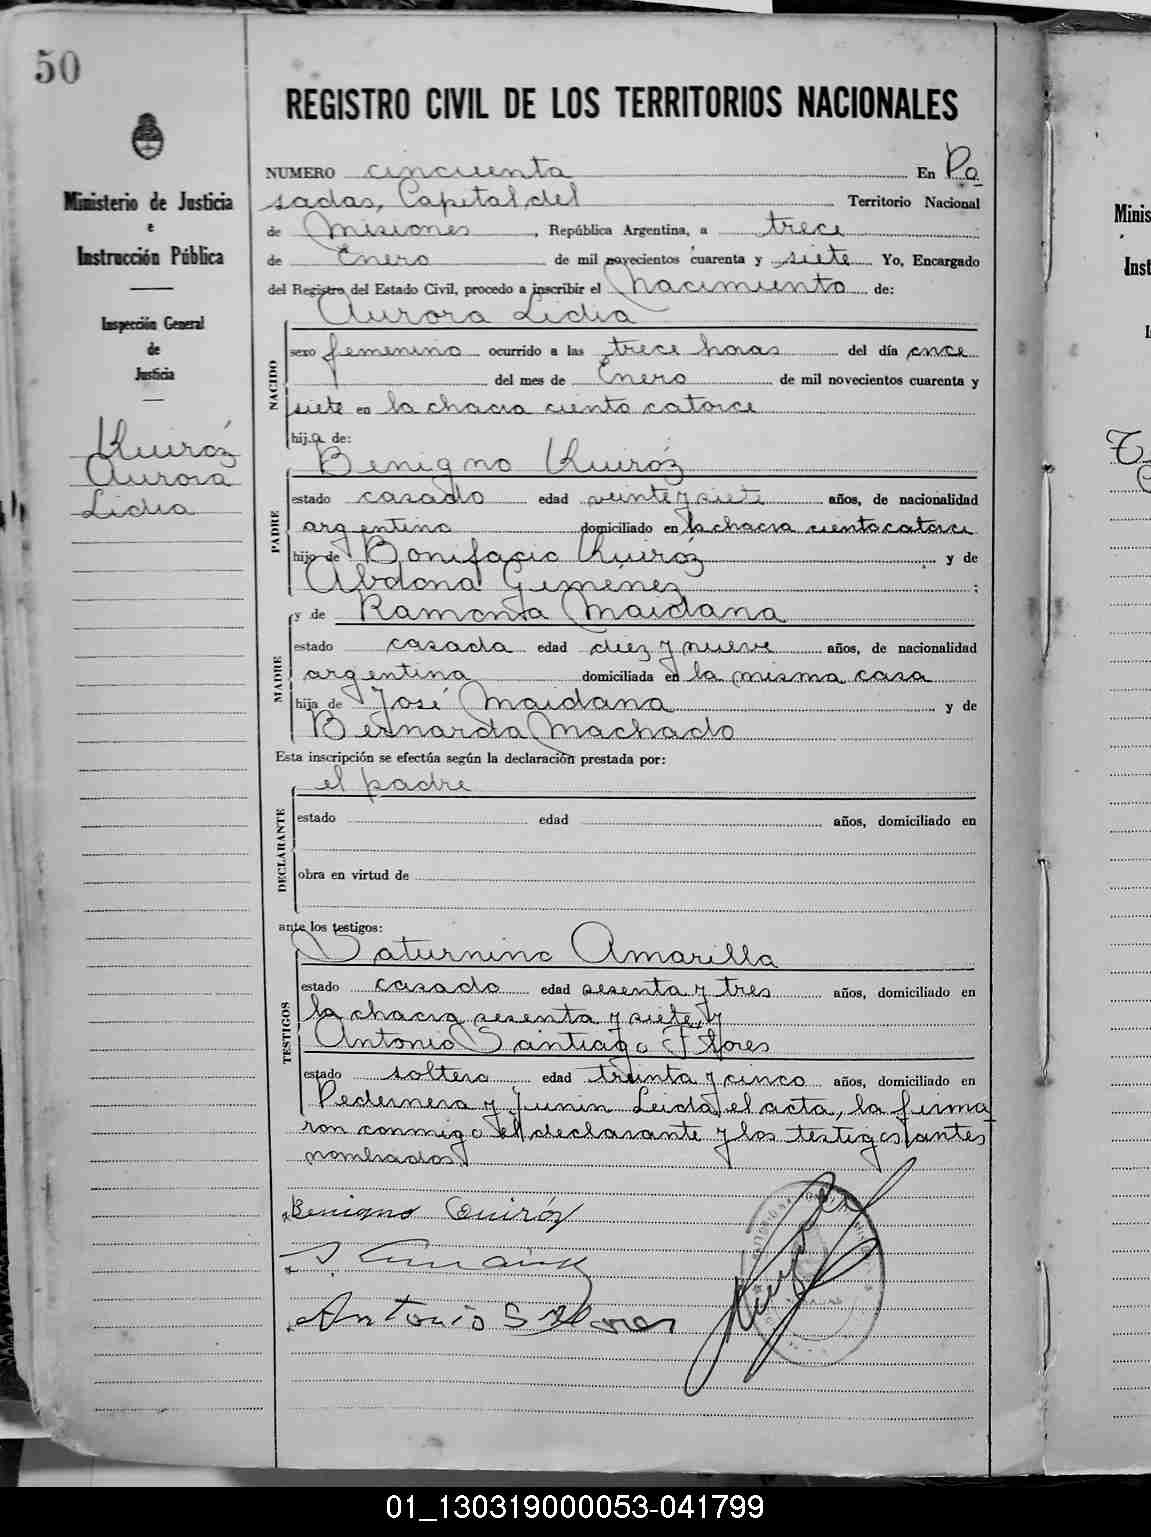 50
REGISTRO CIVIL DE LOS TERRITORIOS NACIONALES
Ministerio de Justicia
e
Instrucción Pública
Inspección General
de
Justicia
Kuiróz
Aurora
Lidia
NUMERO cincuenta En Po
sadas, Capital del Territorio Nacional
de Misiones, República Argentina, a trece
de Enero de mil novecientos cuarenta y siete Yo, Encargado
del Registro del Estado Civil, procedo a inscribir el Nacimiento de:
Aurora Lidia
NACIDO
sexo femenino ocurrido a las trece horas del día once
del mes de Enero de mil novecientos cuarenta y
siete en la chacra ciento catorce
hija de:
Benigno Kuiróz
PADRE
estado casado edad veinte y siete años, de nacionalidad
argentino domiciliado en la chacra ciento catorce
hijo de Bonifacio Kuiróz y de
Abdona Giménez ;
y de Ramona Maidana
MADRE
estado casada edad diez y nueve años, de nacionalidad
argentina domiciliada en la misma casa
hija de José Maidana y de
Bernarda Machado
Esta inscripción se efectúa según la declaración prestada por:
el padre
DECLARANTE
estado edad años, domiciliado en
obra en virtud de
ante los testigos:
Saturnino Amarilla
TESTIGOS
estado casado edad sesenta y tres años, domiciliado en
la chacra sesenta y siete, y
Antonio Santiago Flores
estado soltero edad treinta y cinco años, domiciliado en
Pedernera y Junin Leida el acta, la firma
ron conmigo el declarante y los testigos antes
nombrados.
Benigno Quiróz
Antonio S Flores
Minis
Inst
01_130319000053-041799